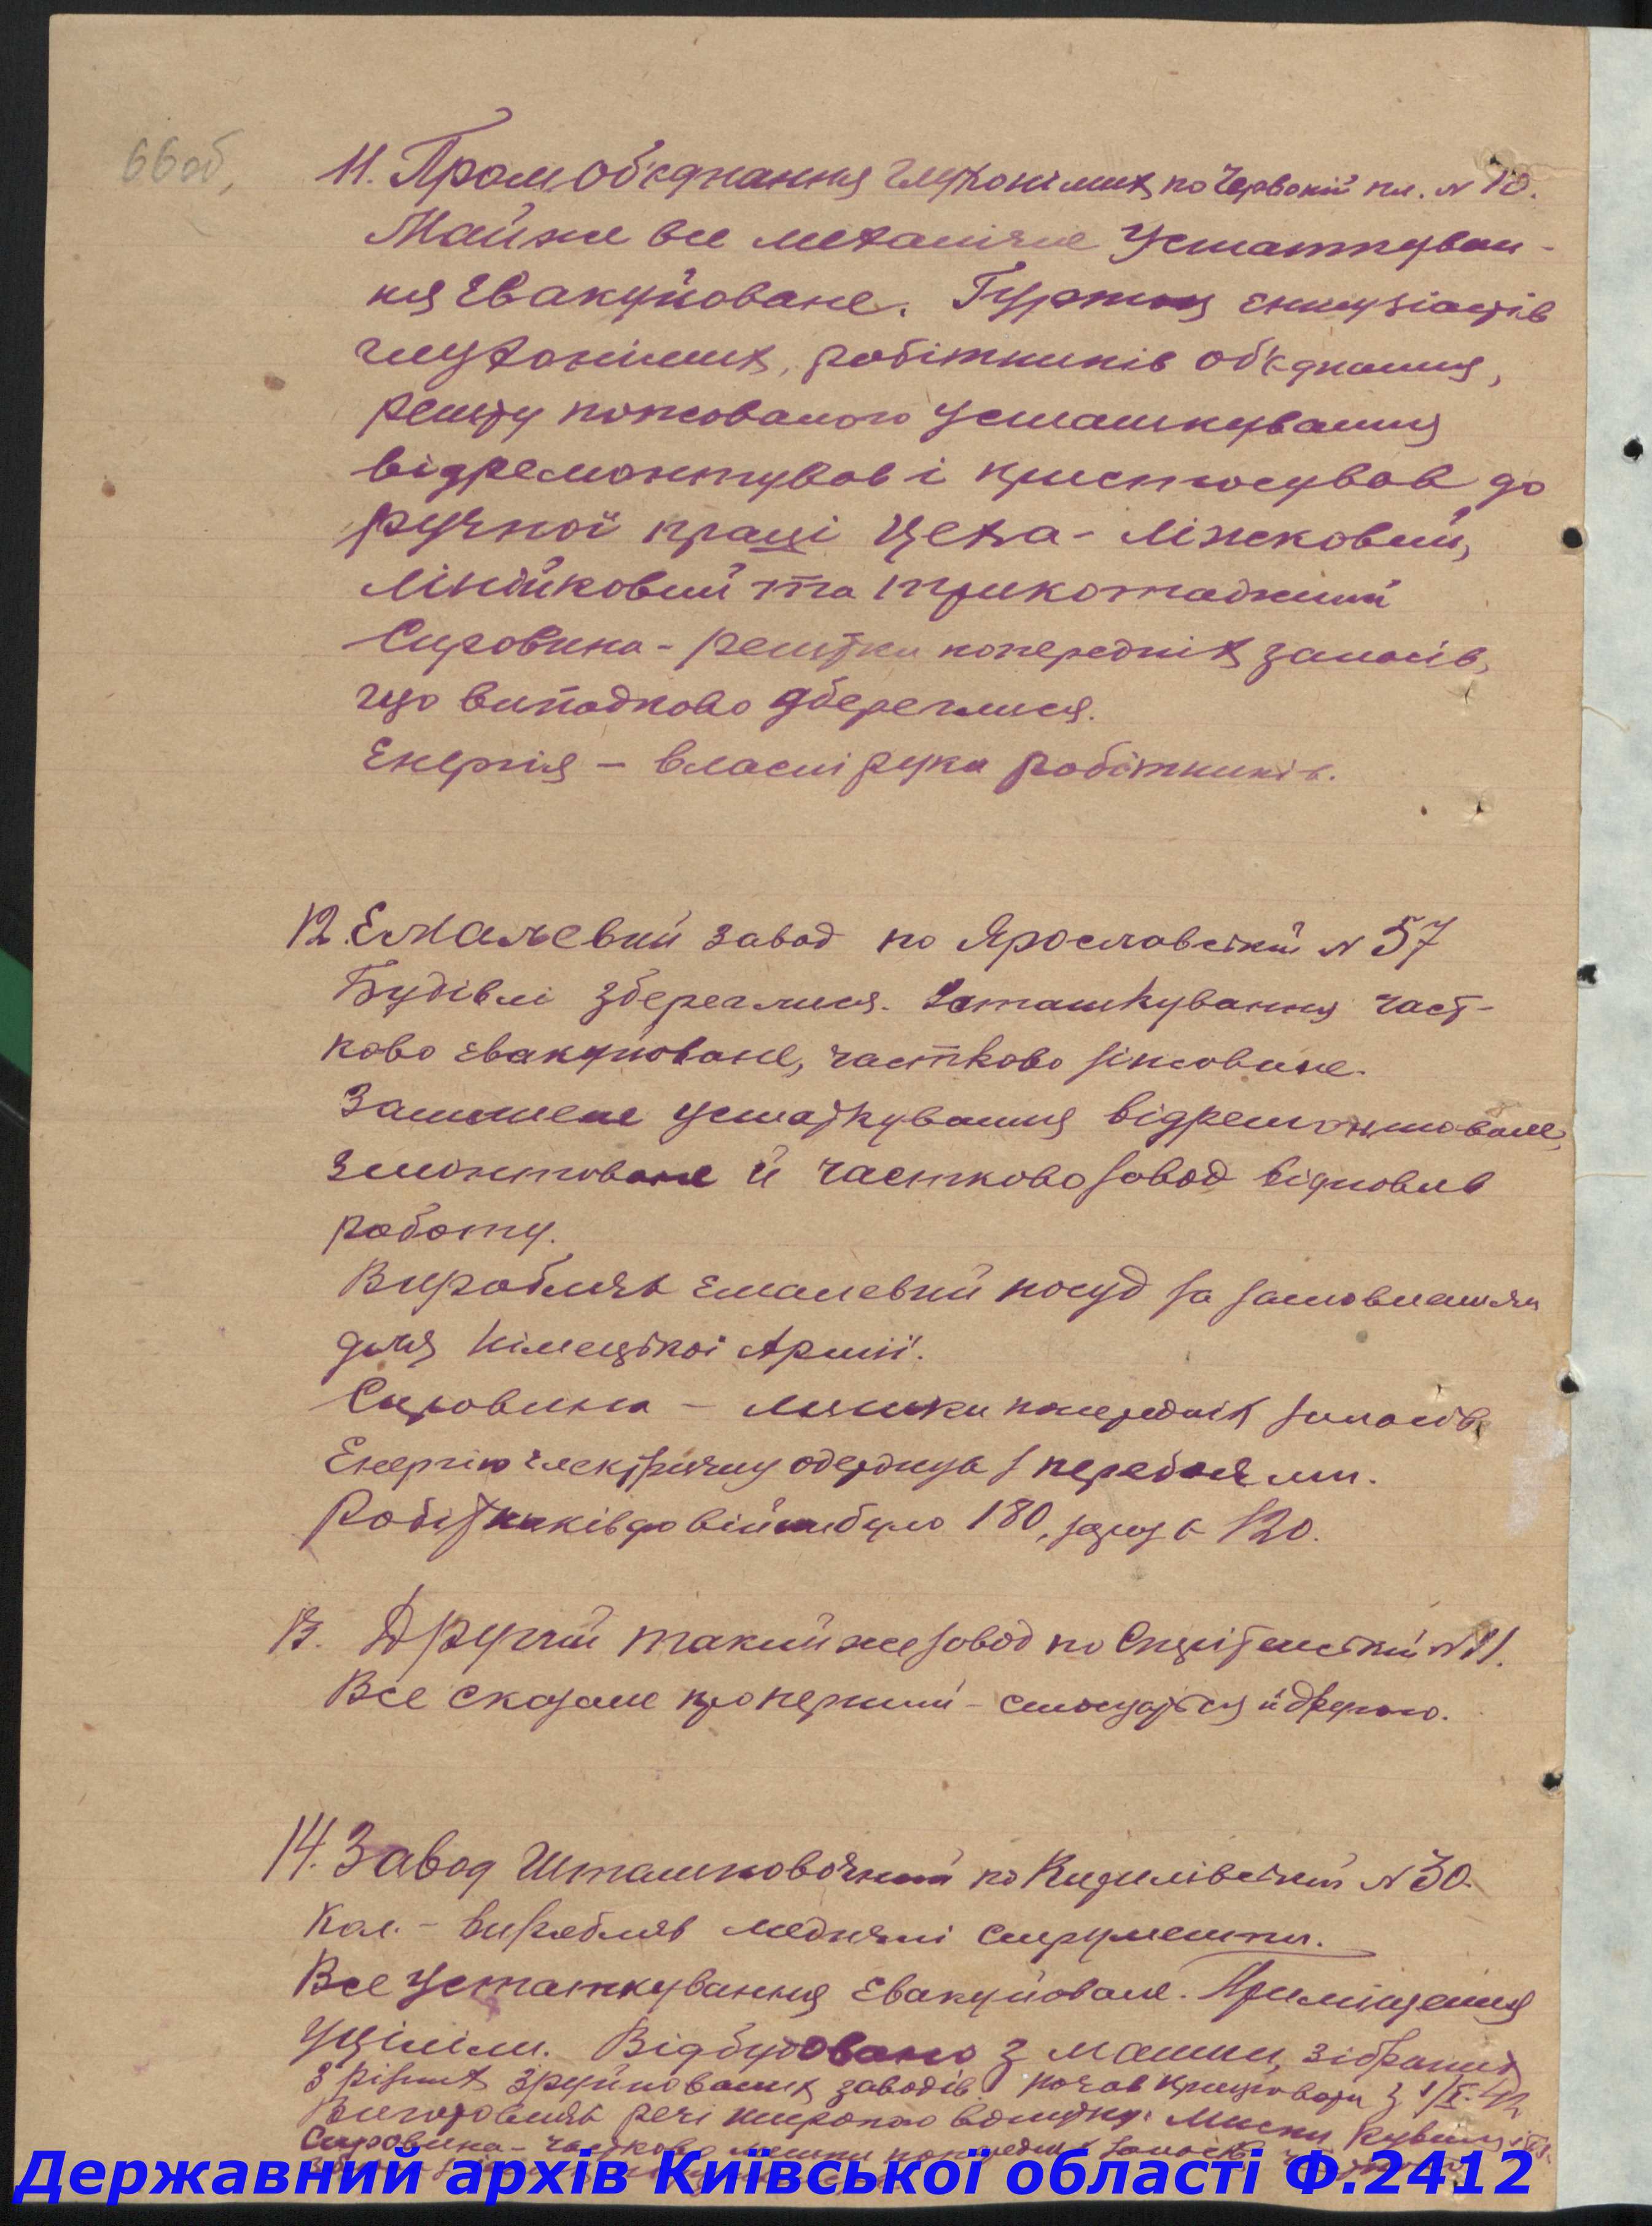 66об,
11. Промоб'єднання глухонімих по Червоній пл. № 10.
Майже все механічне Устаткуван-
ня Евакуйоване. Гурток ентузіастів
глухонімих, робітників об'єднання,
решту попсованого устаткування
відремонтував і пристосував до
ручної праці Цеха - ліжковий,
лінійковий та трикотажний
Сировина - рештки попередніх запасів,
що випадково збереглися.
Енергія – власні руки робітників.
12. Емалевий завод по Ярославській № 57
Будівлі збереглися. Устаткування част-
ково евакуйоване, частково зіпсоване.
Залишене устаткування відремонтоване,
змонтоване й частково завод відновив
роботу.
Виробляв Емалевий посуд за замовленням
для Німецької Армії.
Сировина – лишки попередніх запасів
Енергію електричну одержував з перебоями.
Робітників до війни було 180, зараз 120.
13. Другий такий же завод по Спаській № 11.
Все сказане про перший – стосується й другого.
14. Завод Штамповочний по Кирилівській № 30.
Кол. – виробляв медичні струменти.
Все Устаткування Евакуйоване. Приміщення
уціліли. Відбудовано з машин, зібраних
з різних зруйнованих заводів. Почав працювати з 1/
Виготовляв речі широкого вжитку: Миски
Сировина – частково лишки попередніх запасів
Державний архів Київської області Ф.2412